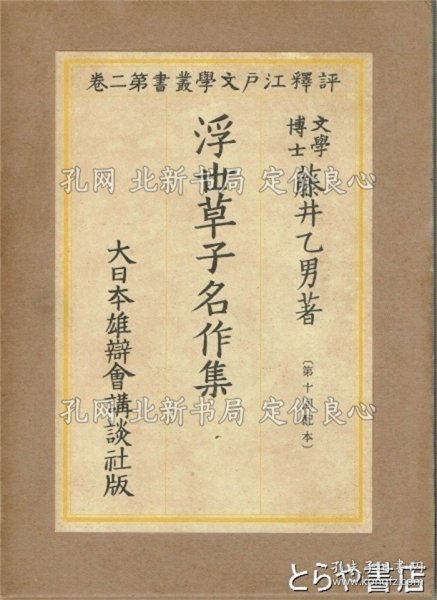 評釋江戸文學叢書第二卷
文學博士 藤井乙男著
〔第十四配本〕
浮世草子名作集
大日本雄辯會講談社版
孔网 北新书局 定价良心
孔网 北新书局 定价良心
とらや書店